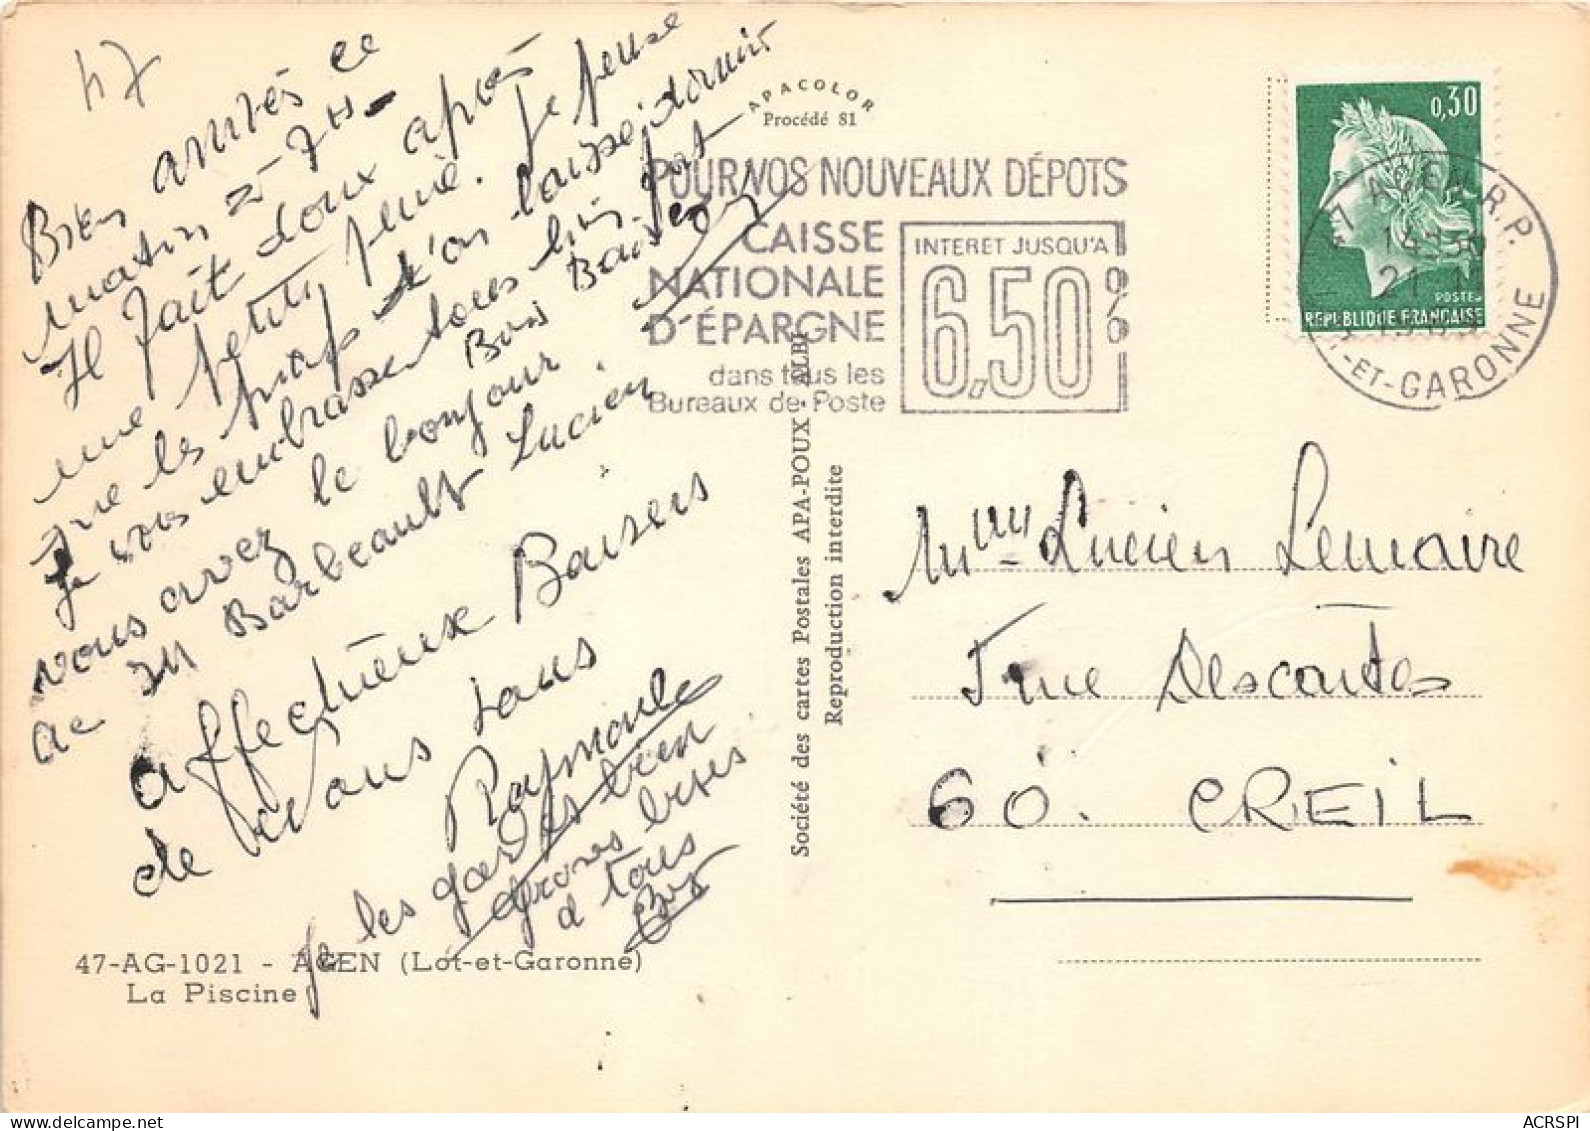 47
Bien arrivés ce
matin 7H
Il fait doux après
une petite pluie. Je pense
que les l'on laisse dormir
Je vous embrasse tous bien fort
vous avez le bonjour Bons Baisers
de Mr Barbeault Lucien
affectueux Baisers
de vous tous
Raymonde
Je les gardes bien
grosses bises
a tous
APACOLOR
Procédé 81
POUR VOS NOUVEAUX DÉPOTS
CAISSE
NATIONALE
D'ÉPARGNE
dans tous les
Bureaux de Poste
INTERET JUSQU'A
6,50%
0,30
POSTES
REPUBLIQUE FRANÇAISE
47 AGEN R.P.
LOT-ET-GARONNE
Société des cartes Postales APA-POUX - ALBI
Reproduction interdite
Mme Lucien Lemaire
7 rue Descartes
60. CREIL
47-AG-1021 - AGEN (Lot-et-Garonne)
La Piscine
ACRSPI